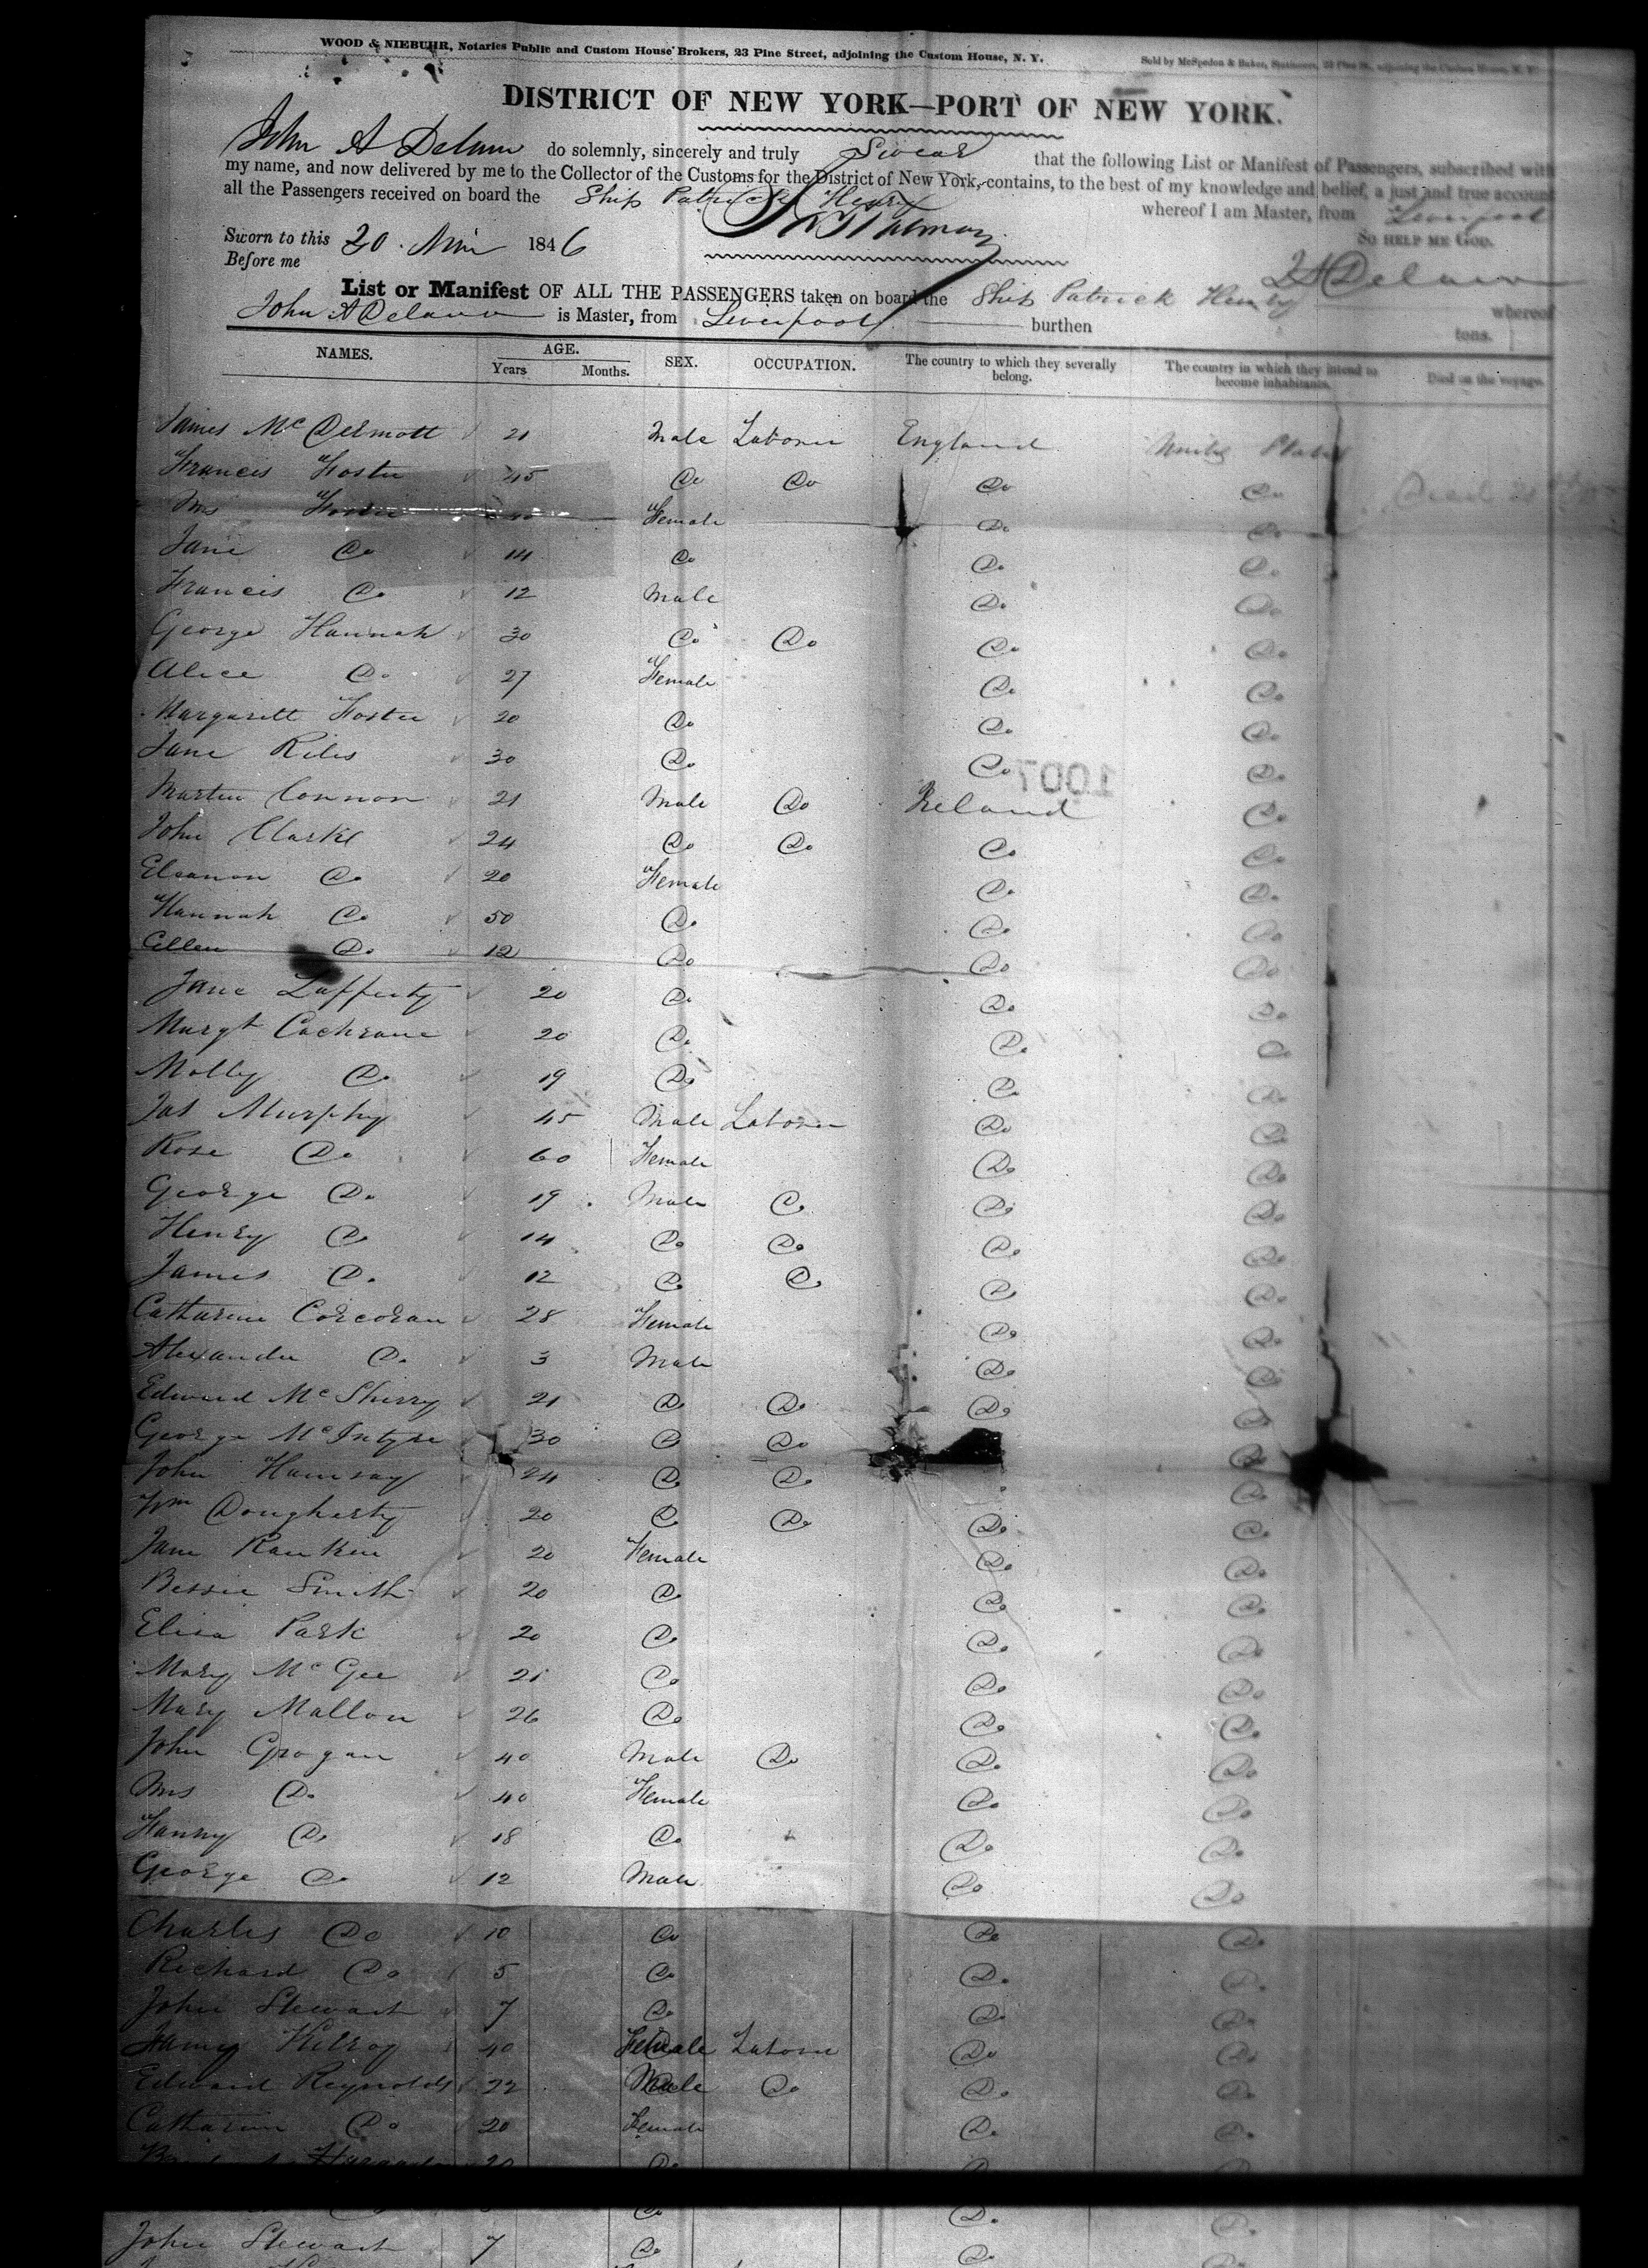 WOOD & NIEBUHR, Notaries Public and Custom House Brokers, 23 Pine Street, adjoining the Custom House, N. Y.
Sold by McSpedon & Baker, Stationers, 25 Pine St., adjoining the Custom House, N. Y.
DISTRICT OF NEW YORK—PORT OF NEW YORK.
John A Delano do solemnly, sincerely and truly Swear that the following List or Manifest of Passengers, subscribed with
my name, and now delivered by me to the Collector of the Customs for the District of New York, contains, to the best of my knowledge and belief, a just and true account
all the Passengers received on board the Ship Patrick Henry whereof I am Master, from Liverpool
Sworn to this 20 1846 SO HELP ME GOD.
Before me J A Delano
List or Manifest OF ALL THE PASSENGERS taken on board the Ship Patrick Henry whereof
John A Delano is Master, from Liverpool burthen tons.
NAMES. AGE. Years Months. SEX. OCCUPATION. The country to which they severally belong. The country in which they intend to become inhabitants. Died on the voyage.
James McDermott 21 Male Laborer England United States
Francis Foster 45 Do Do Do Do Died
Mrs Foster Female Do Do
Jane Do 14 Do Do Do
Francis Do 12 Male Do Do
George Hannah 30 Do Do Do Do
Alice Do 27 Female Do Do
Margarett Foster 20 Do Do Do
Jane Riles 30 Do Do Do
1007
Martin Connon 21 Male Do Ireland Do
John Clarke 24 Do Do Do Do
Eleanon Do 20 Female Do Do
Hannah Do 50 Do Do Do
Ellen Do 12 Do Do Do
Jane Lafferty 20 Do Do Do
Margt Cochrane 20 Do Do Do
Molly Do 19 Do Do Do
Jas Murphy 45 Male Laborer Do Do
Rose Do 60 Female Do Do
George Do 19 Male Do Do Do
Henry Do 14 Do Do Do Do
James Do 12 Do Do Do Do
Catharine Corcoran 28 Female Do Do
Alexander Do 3 Male Do Do
Edward McSherry 21 Do Do Do Do
George McIntyre 30 Do Do Do
John 24 Do Do Do
Wm Dougherty 20 Do Do Do Do
Jane Rankin 20 Female Do Do
Bessie Smith 20 Do Do Do
Eliza Park 20 Do Do Do
Mary McGee 21 Do Do Do
Mary Mallon 26 Do Do Do
John Grogan 40 Male Do Do Do
Mrs Do 40 Female Do Do
Fanny Do 18 Do Do Do
George Do 12 Male Do Do
Charles Do 10 Do Do Do
Richard Do 5 Do Do Do
John Stewart 7 Do Do Do
Kilroy 40 Female Laborer Do Do
Edward Reynolds 22 Male Do Do Do
Catharine Do 20 Female Do Do
20 Do Do Do
Do Do Do
John Stewart 7 Do Do Do